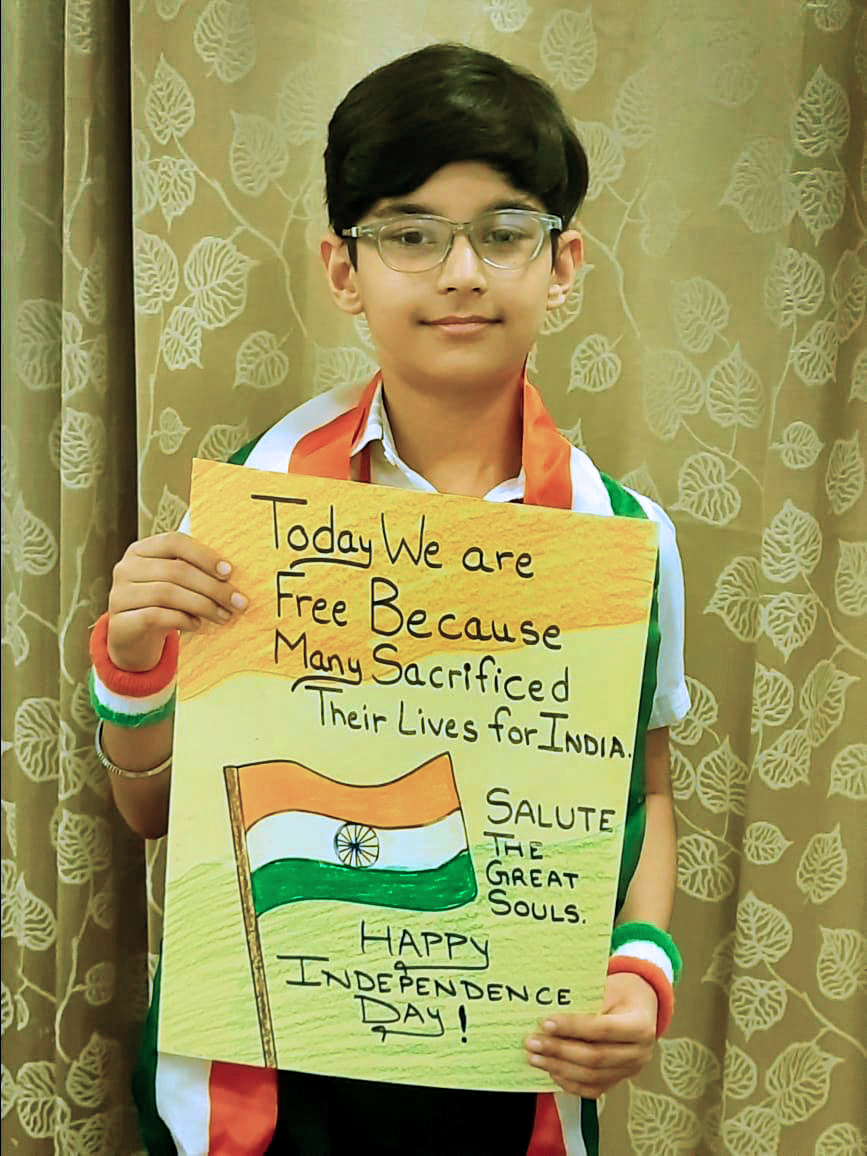 Today We are
Free Because
Many Sacrificed
Their Lives for INDIA.
SALUTE
THE
GREAT
SOULS.
HAPPY
INDEPENDENCE
DAY!